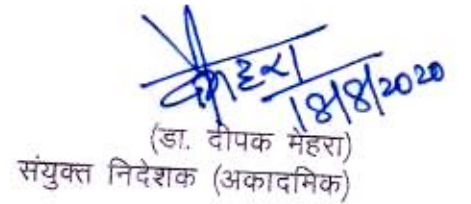 मेहरा
18/8/2020
(डा. दीपक मेहरा)
संयुक्त निदेशक (अकादमिक)